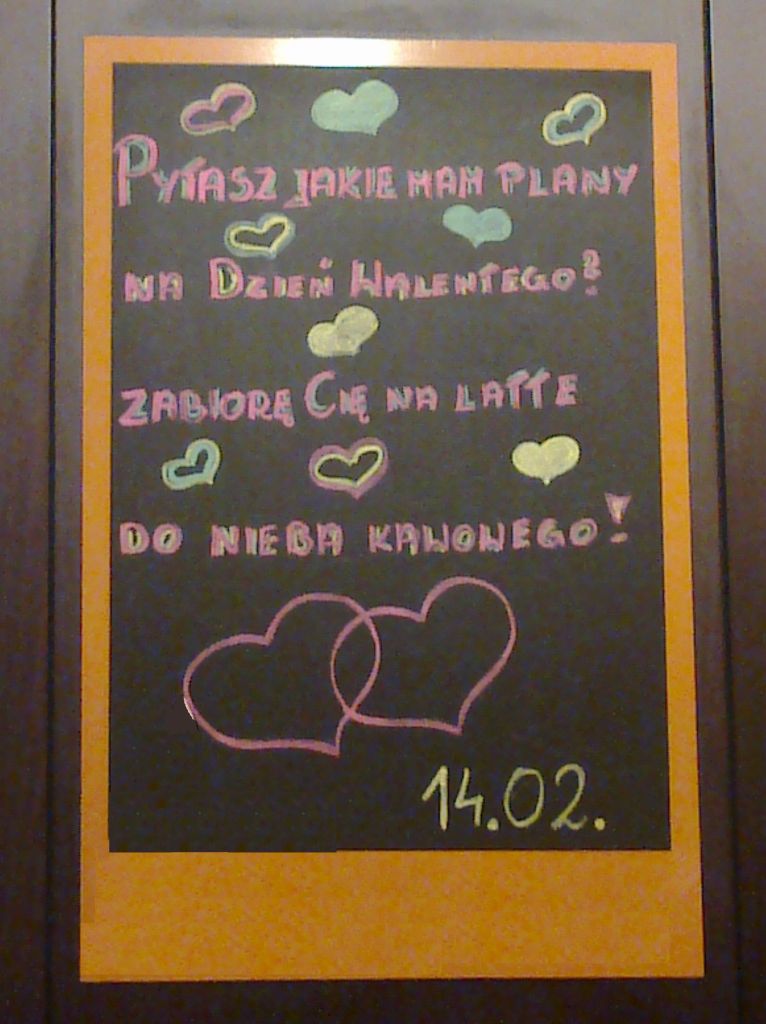 PYTASZ JAKIE MAM PLANY
NA DZIEŃ WALENTEGO?
ZABIORĘ CIĘ NA LATTE
DO NIEBA KAWOWEGO!
14.02.